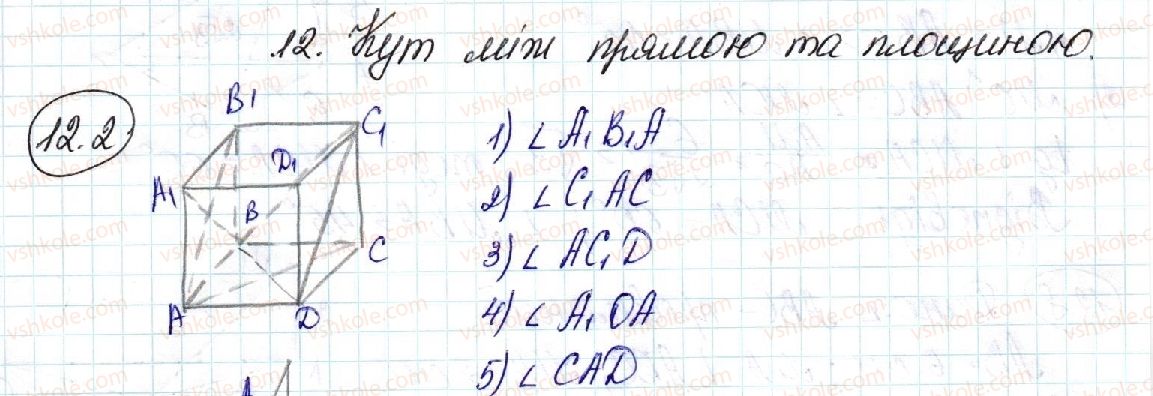 12. Кут між прямою та площиною.
12.2
B1 C1
A1 D1
B C
A D
1) ∠ A₁B₁A
2) ∠ C₁AC
3) ∠ AC₁D
4) ∠ A₁OA
5) ∠ CAD
vshkole.com